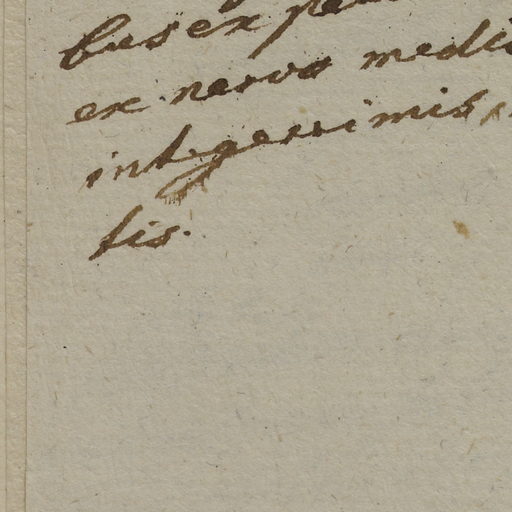 bus ex
ex nervo medi
integerrimis
tis.